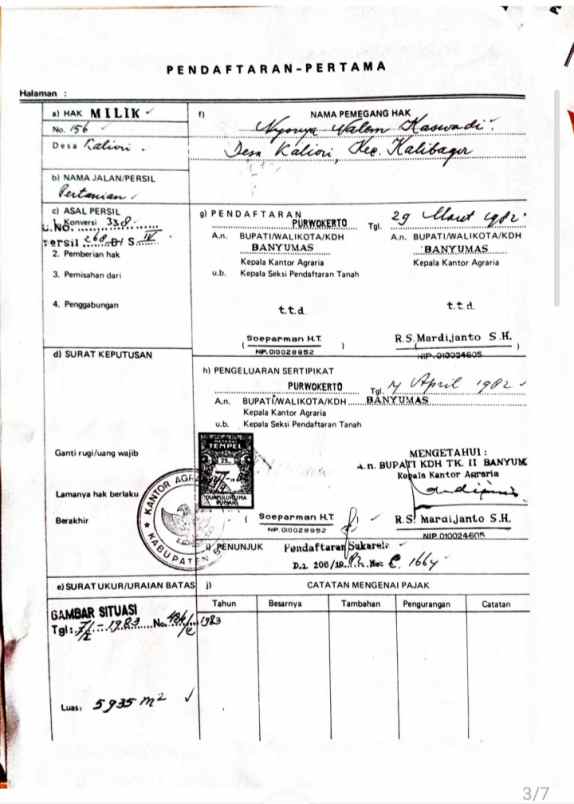 PENDAFTARAN-PERTAMA
Halaman :
a) HAK MILIK
No. 156
Desa Kaliori .
b) NAMA JALAN/PERSIL
Pertanian
c) ASAL PERSIL
1. Konversi 338
u.No.
persil 268 D I S. IV
2. Pemberian hak
3. Pemisahan dari
4. Penggabungan
d) SURAT KEPUTUSAN
Ganti rugi/uang wajib
Lamanya hak berlaku
Berakhir
e) SURAT UKUR/URAIAN BATAS
GAMBAR SITUASI
Tgl: 7/2 - 1983 No. /1983
Luas: 5935 m2
f) NAMA PEMEGANG HAK
Nyonya Kaswadi.
Desa Kaliori, Kec. Kalibagor
g) PENDAFTARAN
PURWOKERTO Tgl. 29 Maret 1982
A.n. BUPATI/WALIKOTA/KDH
BANYUMAS
Kepala Kantor Agraria
u.b. Kepala Seksi Pendaftaran Tanah
t.t.d.
( Soeparman H.T. )
NIP.010028952
A.n. BUPATI/WALIKOTA/KDH
BANYUMAS
Kepala Kantor Agraria
t.t.d.
R.S. Mardijanto S.H. )
NIP.010024605
h) PENGELUARAN SERTIPIKAT
PURWOKERTO Tgl. April 1982
A.n. BUPATI/WALIKOTA/KDH BANYUMAS
Kepala Kantor Agraria
u.b. Kepala Seksi Pendaftaran Tanah
TEMPEL
MENGETAHUI :
a.n. BUPATI KDH TK. II BANYUM
Kepala Kantor Agraria
KANTOR AGR
KABUPAT
( Soeparman H.T. )
NIP.010028952
R.S. Mardijanto S.H.
NIP.010024605
i) PENUNJUK Pendaftaran Sukarela
D.I. 208/19 No: 1664
j) CATATAN MENGENAI PAJAK
Tahun Besarnya Tambahan Pengurangan Catatan
3/7